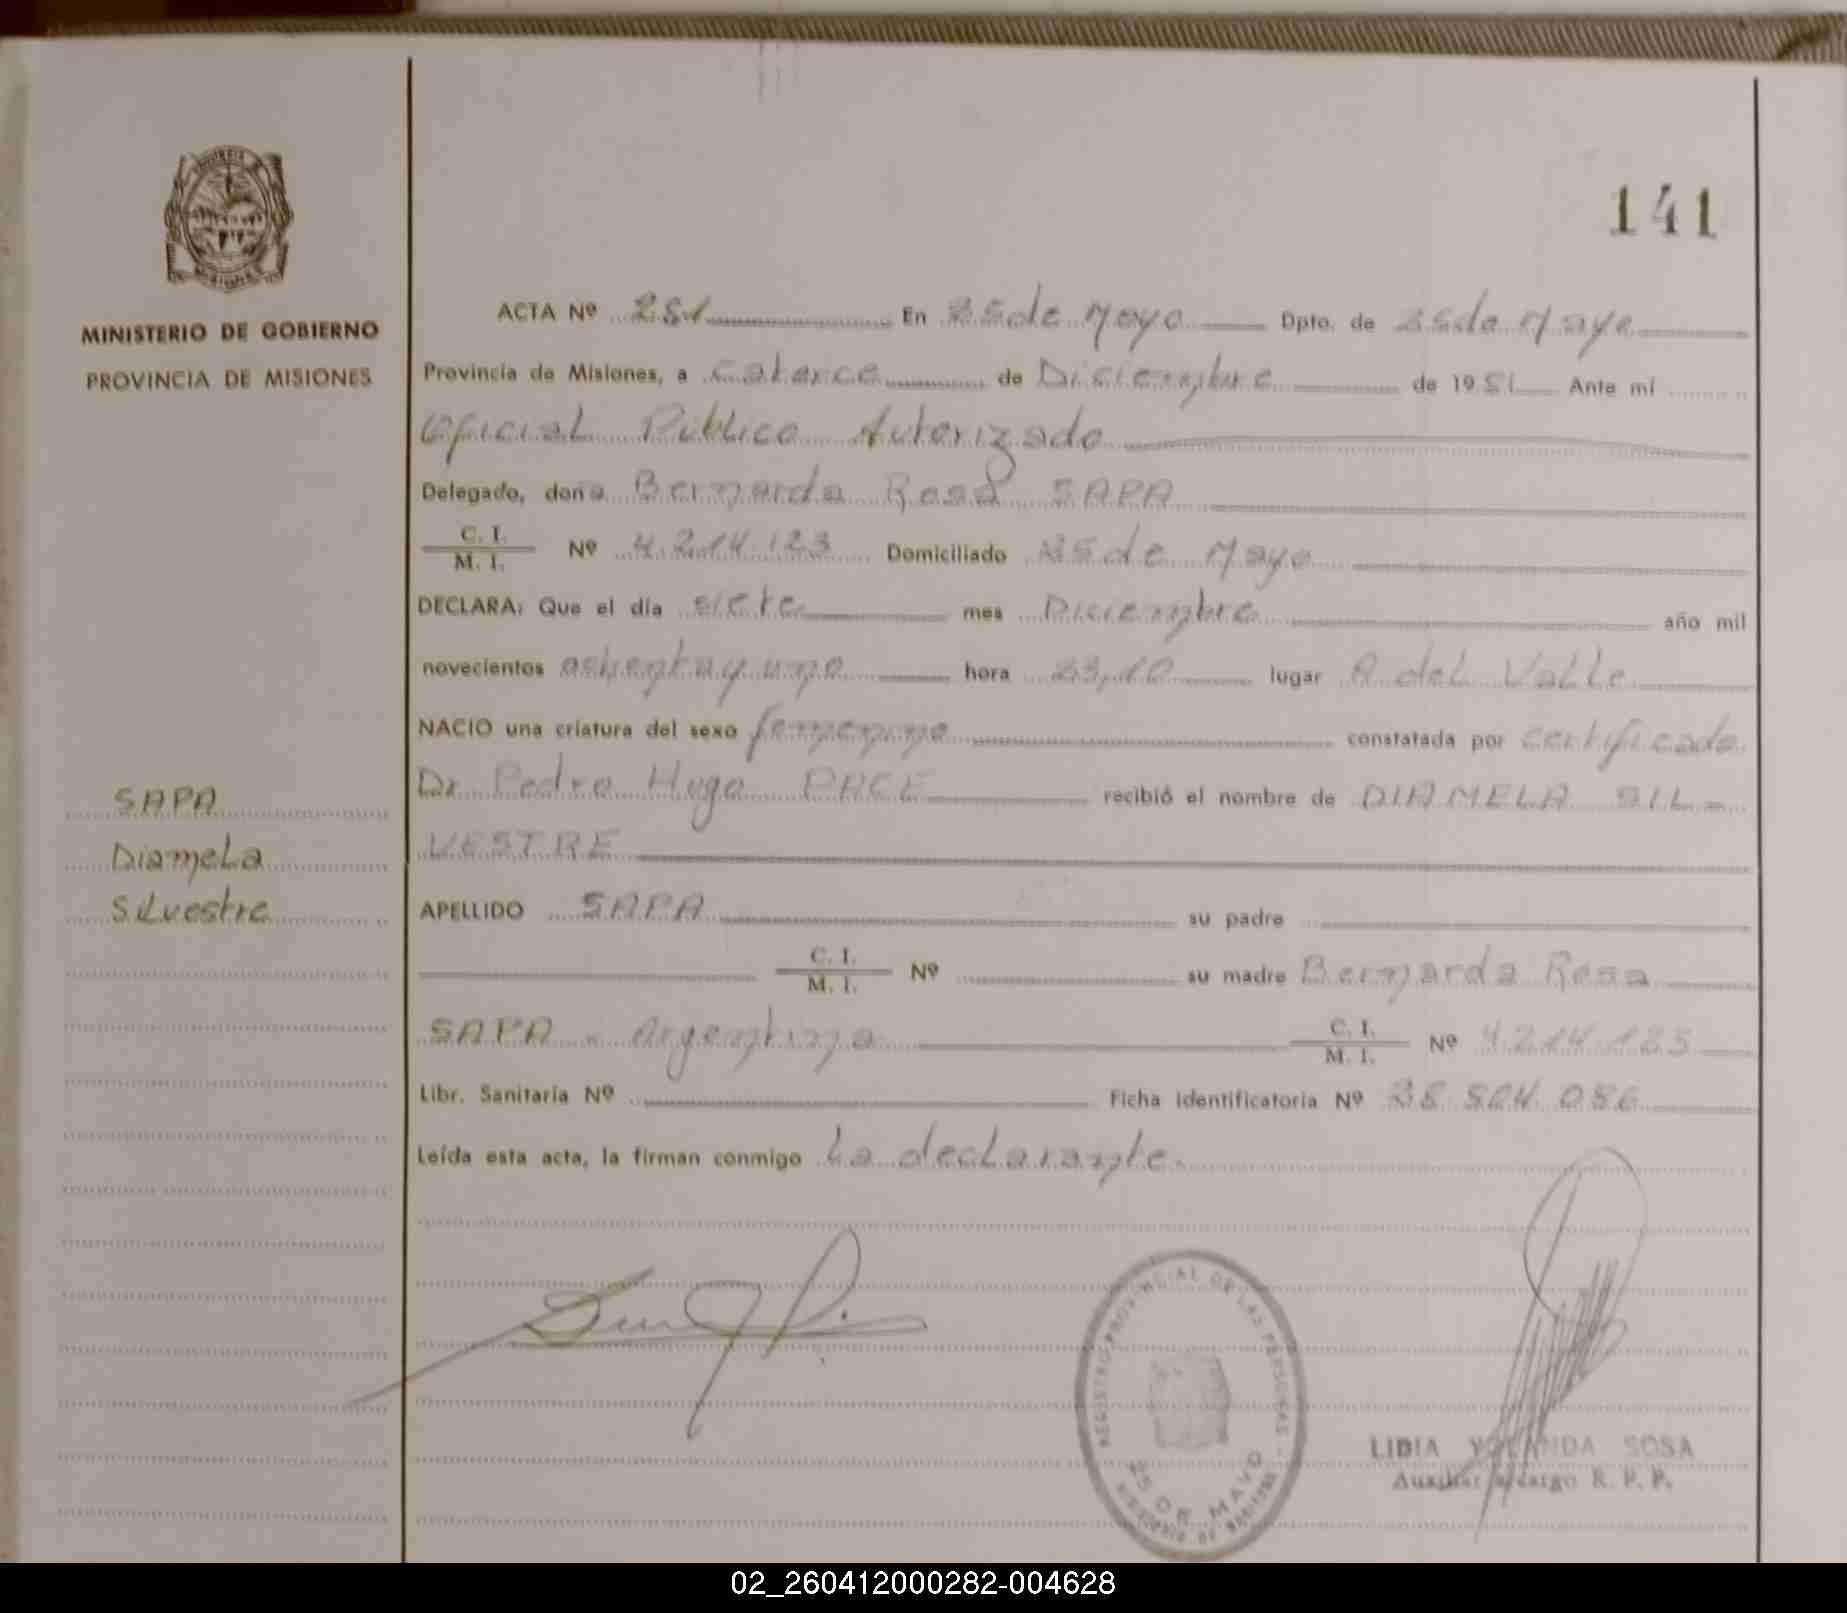 141
MINISTERIO DE GOBIERNO
PROVINCIA DE MISIONES
ACTA Nº 281 En 25 de Mayo Dpto. de 25 de Mayo
Provincia de Misiones, a catorce de Diciembre de 1981 Ante mí
Oficial Público Autorizado
Delegado, doña Bernarda Rosa SAPA
C. I.
M. I. Nº 4.214.123 Domiciliado 25 de Mayo
DECLARA: Que el día siete mes Diciembre año mil
novecientos ochenta y uno hora 23,10 lugar A del Valle
NACIO una criatura del sexo femenino constatada por certificado
Dr Pedro Hugo PACE recibió el nombre de DIAMELA SIL-
VESTRE
SAPA
Diamela
Silvestre
APELLIDO SAPA su padre
C. I.
M. I. Nº su madre Bernarda Rosa
SAPA - Argentina C. I.
M. I. Nº 4.214.123
Libr. Sanitaria Nº Ficha identificatoria Nº 28.804.086
Leída esta acta, la firman conmigo la declarante.
REGISTRO PROVINCIAL DE LAS PERSONAS
25 DE MAYO
LIDIA YOLANDA SOSA
Auxiliar a cargo R. P. P.
02_260412000282-004628